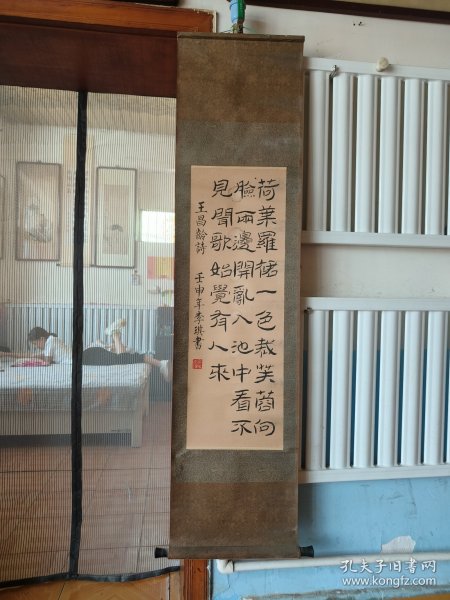 荷葉羅裙一色裁芙蓉向
臉兩邊開亂入池中看不
見聞歌始覺有人來
王昌齡詩
壬申年李琪書
孔夫子旧书网
www.kongfz.com